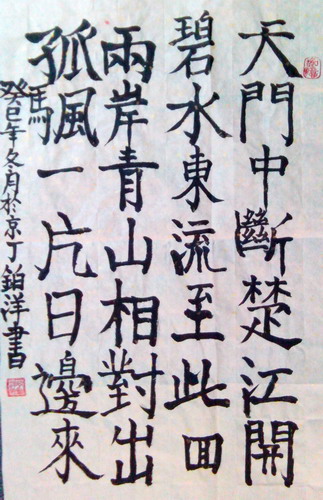 天門中斷楚江開
碧水東流至此回
兩岸青山相對出
孤颿一片日邊來
癸巳年冬月於京丁鉑洋書